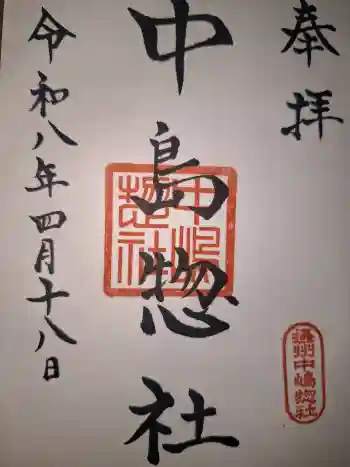 奉拝
中島惣社
中嶋惣社
攝州中嶋惣社
令和八年四月十八日